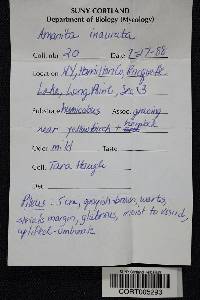 SUNY CORTLAND
Department of Biology (Mycology)
Amanita inaurata
Coll. no: 20 Date: 7-27-88
Location: NY, Hamilton Co, Raquette
Lake, Long Point,
Substrate: humicolous Assoc. growing
near yellow birch + hemlock
Odor: mild Taste
Coll. Tara Hough
Det.
Pileus: 5 cm, grayish-brown, warts,
striate margin, glabrous, moist to viscid,
uplifted-umbonate
CORT005293